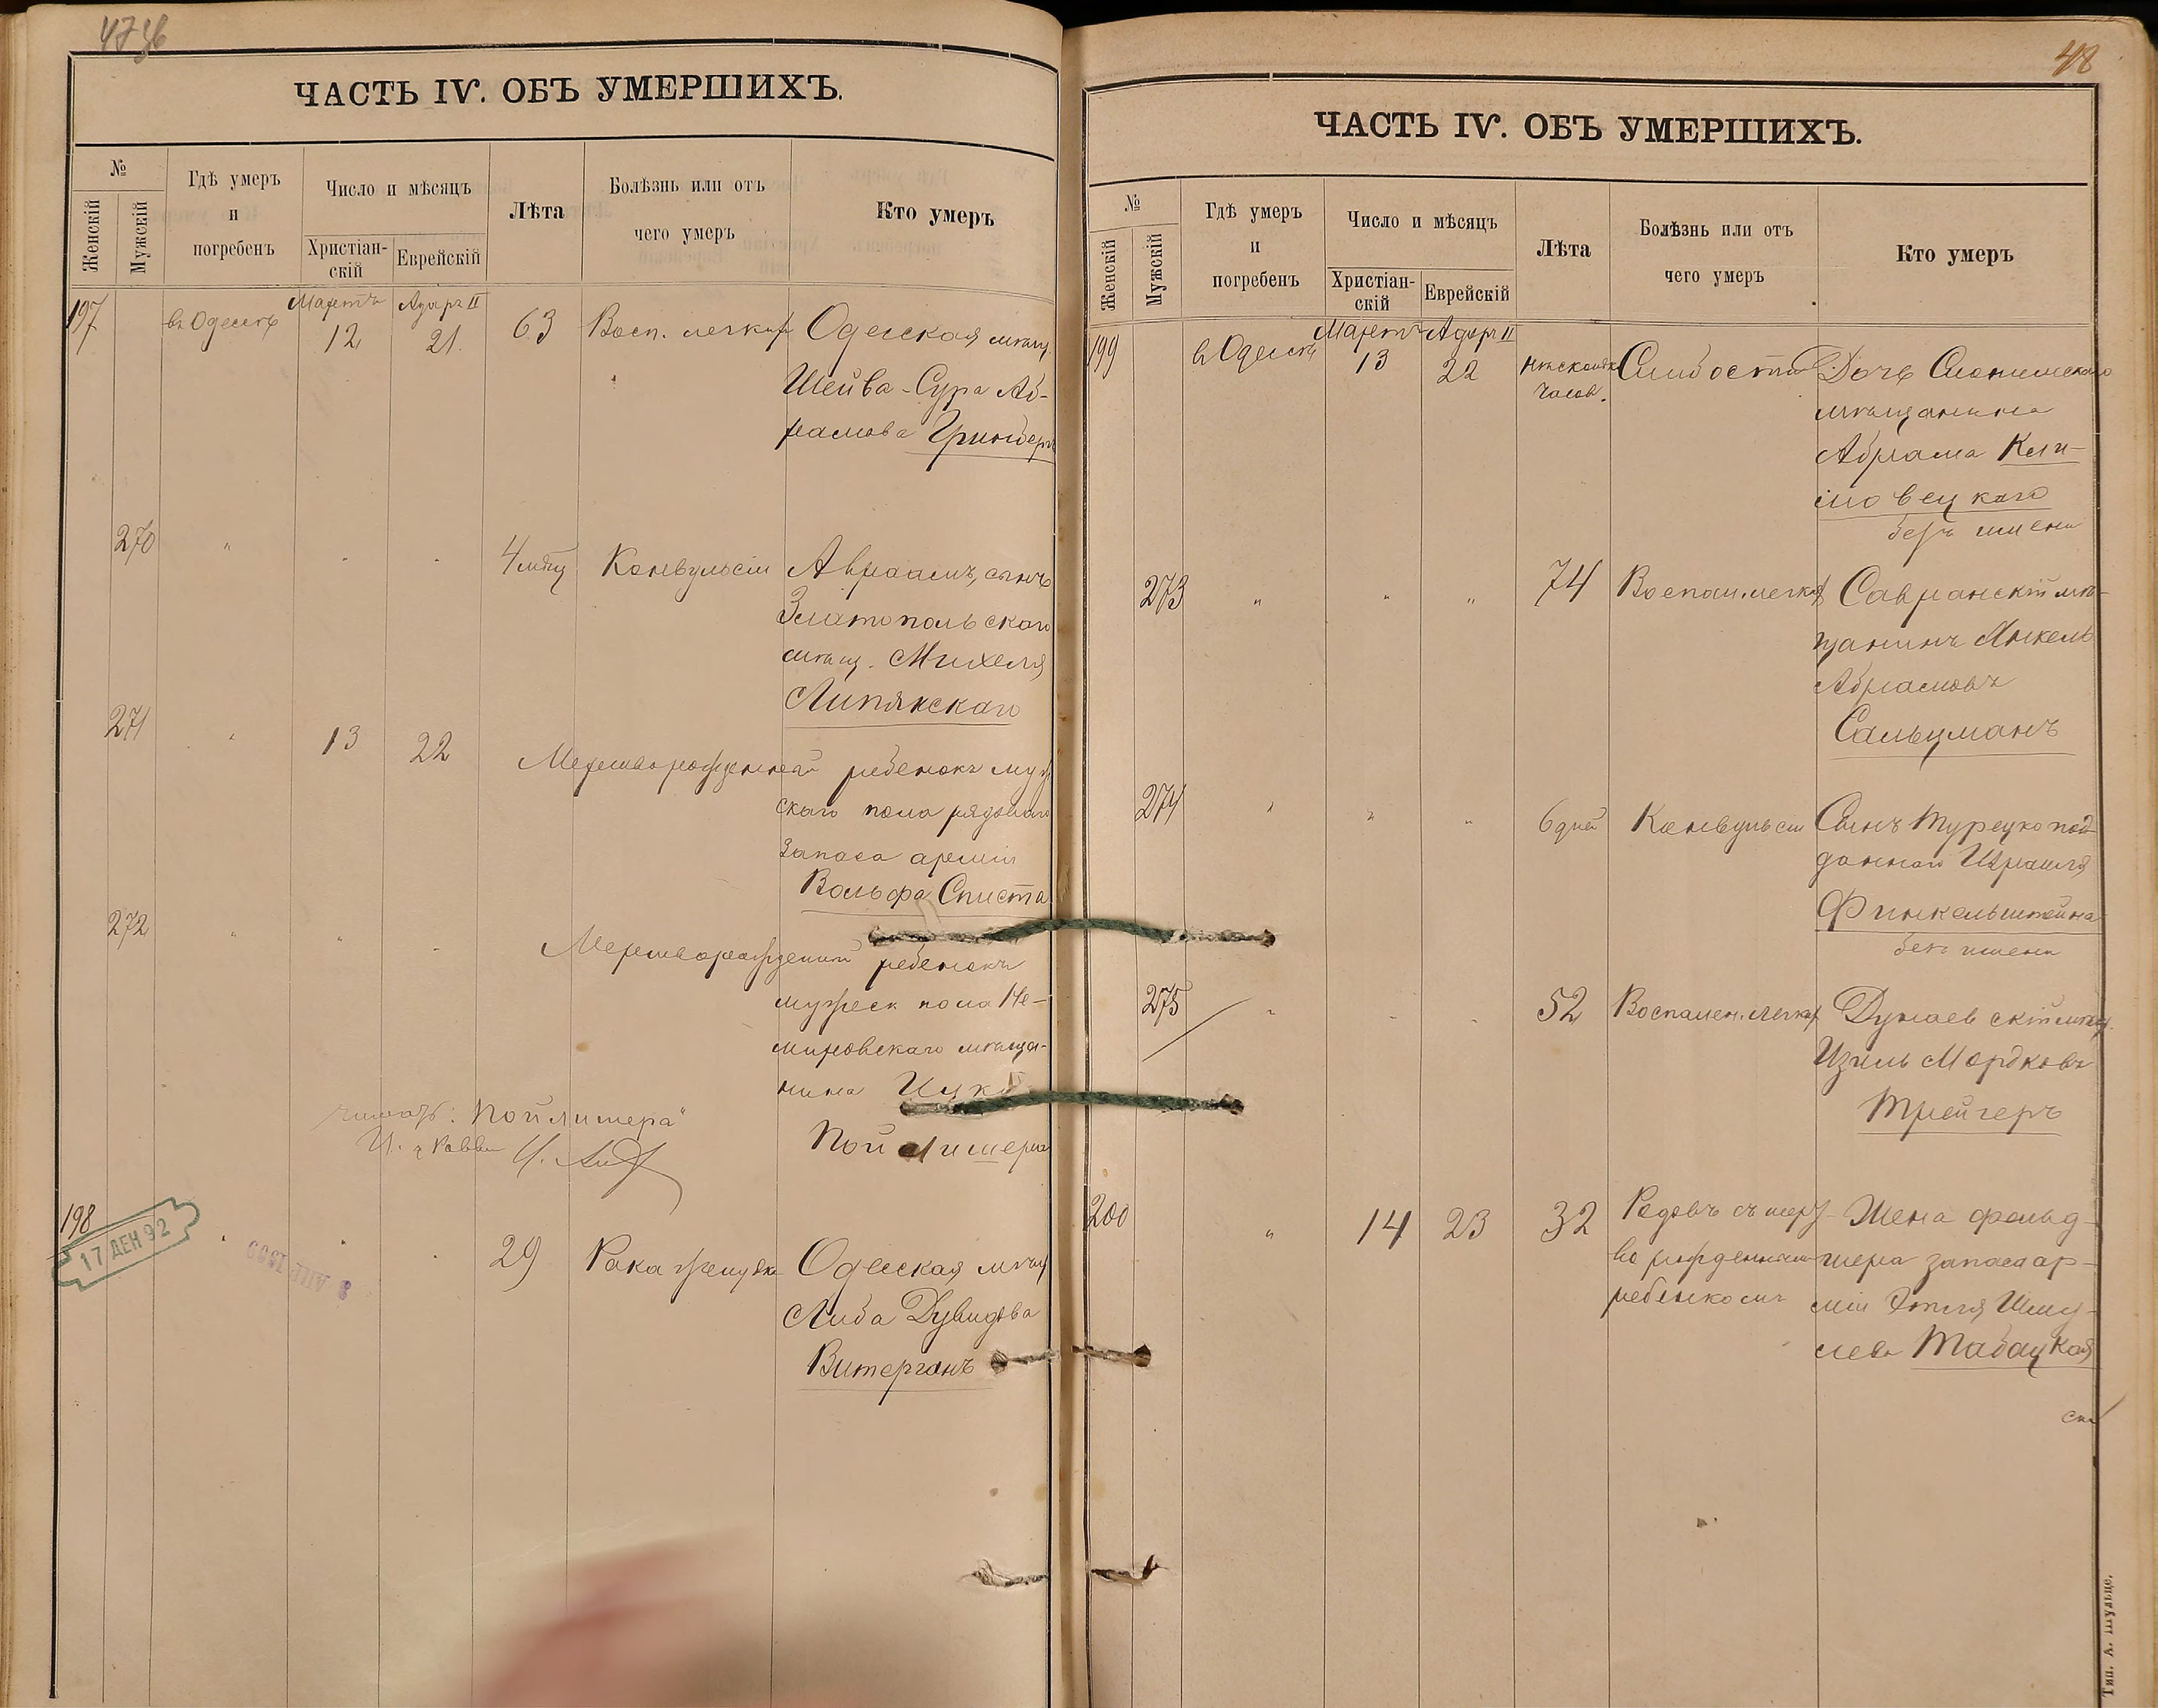 47 об
ЧАСТЬ IV. ОБЪ УМЕРШИХЪ.
№
Женскій
Мужскій
Гдѣ умеръ
и
погребенъ
Число и мѣсяцъ
Христіан-
скій
Еврейскій
Лѣта
Болѣзнь или отъ
чего умеръ
Кто умеръ
197
въ Одессѣ
Мартъ
12
Адаръ II
21
63
Восп. легких
Одесская мѣщ.
Шейва-Сура Аб-
рамова Гринберг
270
"
"
"
4 мѣсц
Конвульсіи
Авраамъ, сынъ
Златопольскаго
мѣщ. Михеля
Липянскаго
271
"
13
22
Мертворожденный ребенокъ муж
скаго пола рядоваго
запаса арміи
Вольфа Списта
272
"
"
"
Мертворожденный ребенокъ
мужеск пола Не-
мировскаго мѣща-
нина Ицк
Пойлишера
читать: "Пойлишера"
198
"
"
"
29
Рака желудка
Одесская мѣщ
Либа Дувидова
Витерганъ
17 ДЕН 92
48
ЧАСТЬ IV. ОБЪ УМЕРШИХЪ.
№
Женскій
Мужскій
Гдѣ умеръ
и
погребенъ
Число и мѣсяцъ
Христіан-
скій
Еврейскій
Лѣта
Болѣзнь или отъ
чего умеръ
Кто умеръ
199
въ Одессѣ
Мартъ
13
Адаръ II
22
нѣсколько
часов.
Слабости
Дочь Слонимскаго
мѣщанина
Абрама Кли-
мовецкаго
безъ имени
273
"
"
"
74
Воспал. легких
Савранскій мѣ-
щанинъ Янкель
Абрамовъ
Сальцманъ
274
"
"
"
6 дней
Конвульсіи
Сынъ турецко под-
даннаго Израиля
Финкельштейна
безъ имени
275
"
"
"
52
Воспален. легких
Дунаевскій мѣщ.
Изиль Мордковъ
Трейгеръ
200
"
14
23
32
Родовъ съ мерт-
ворожденнымъ
ребенкомъ
Жена фельд-
шера запаса ар-
міи Этля Шму-
лева Табацкая
Тип. А. Шульце.